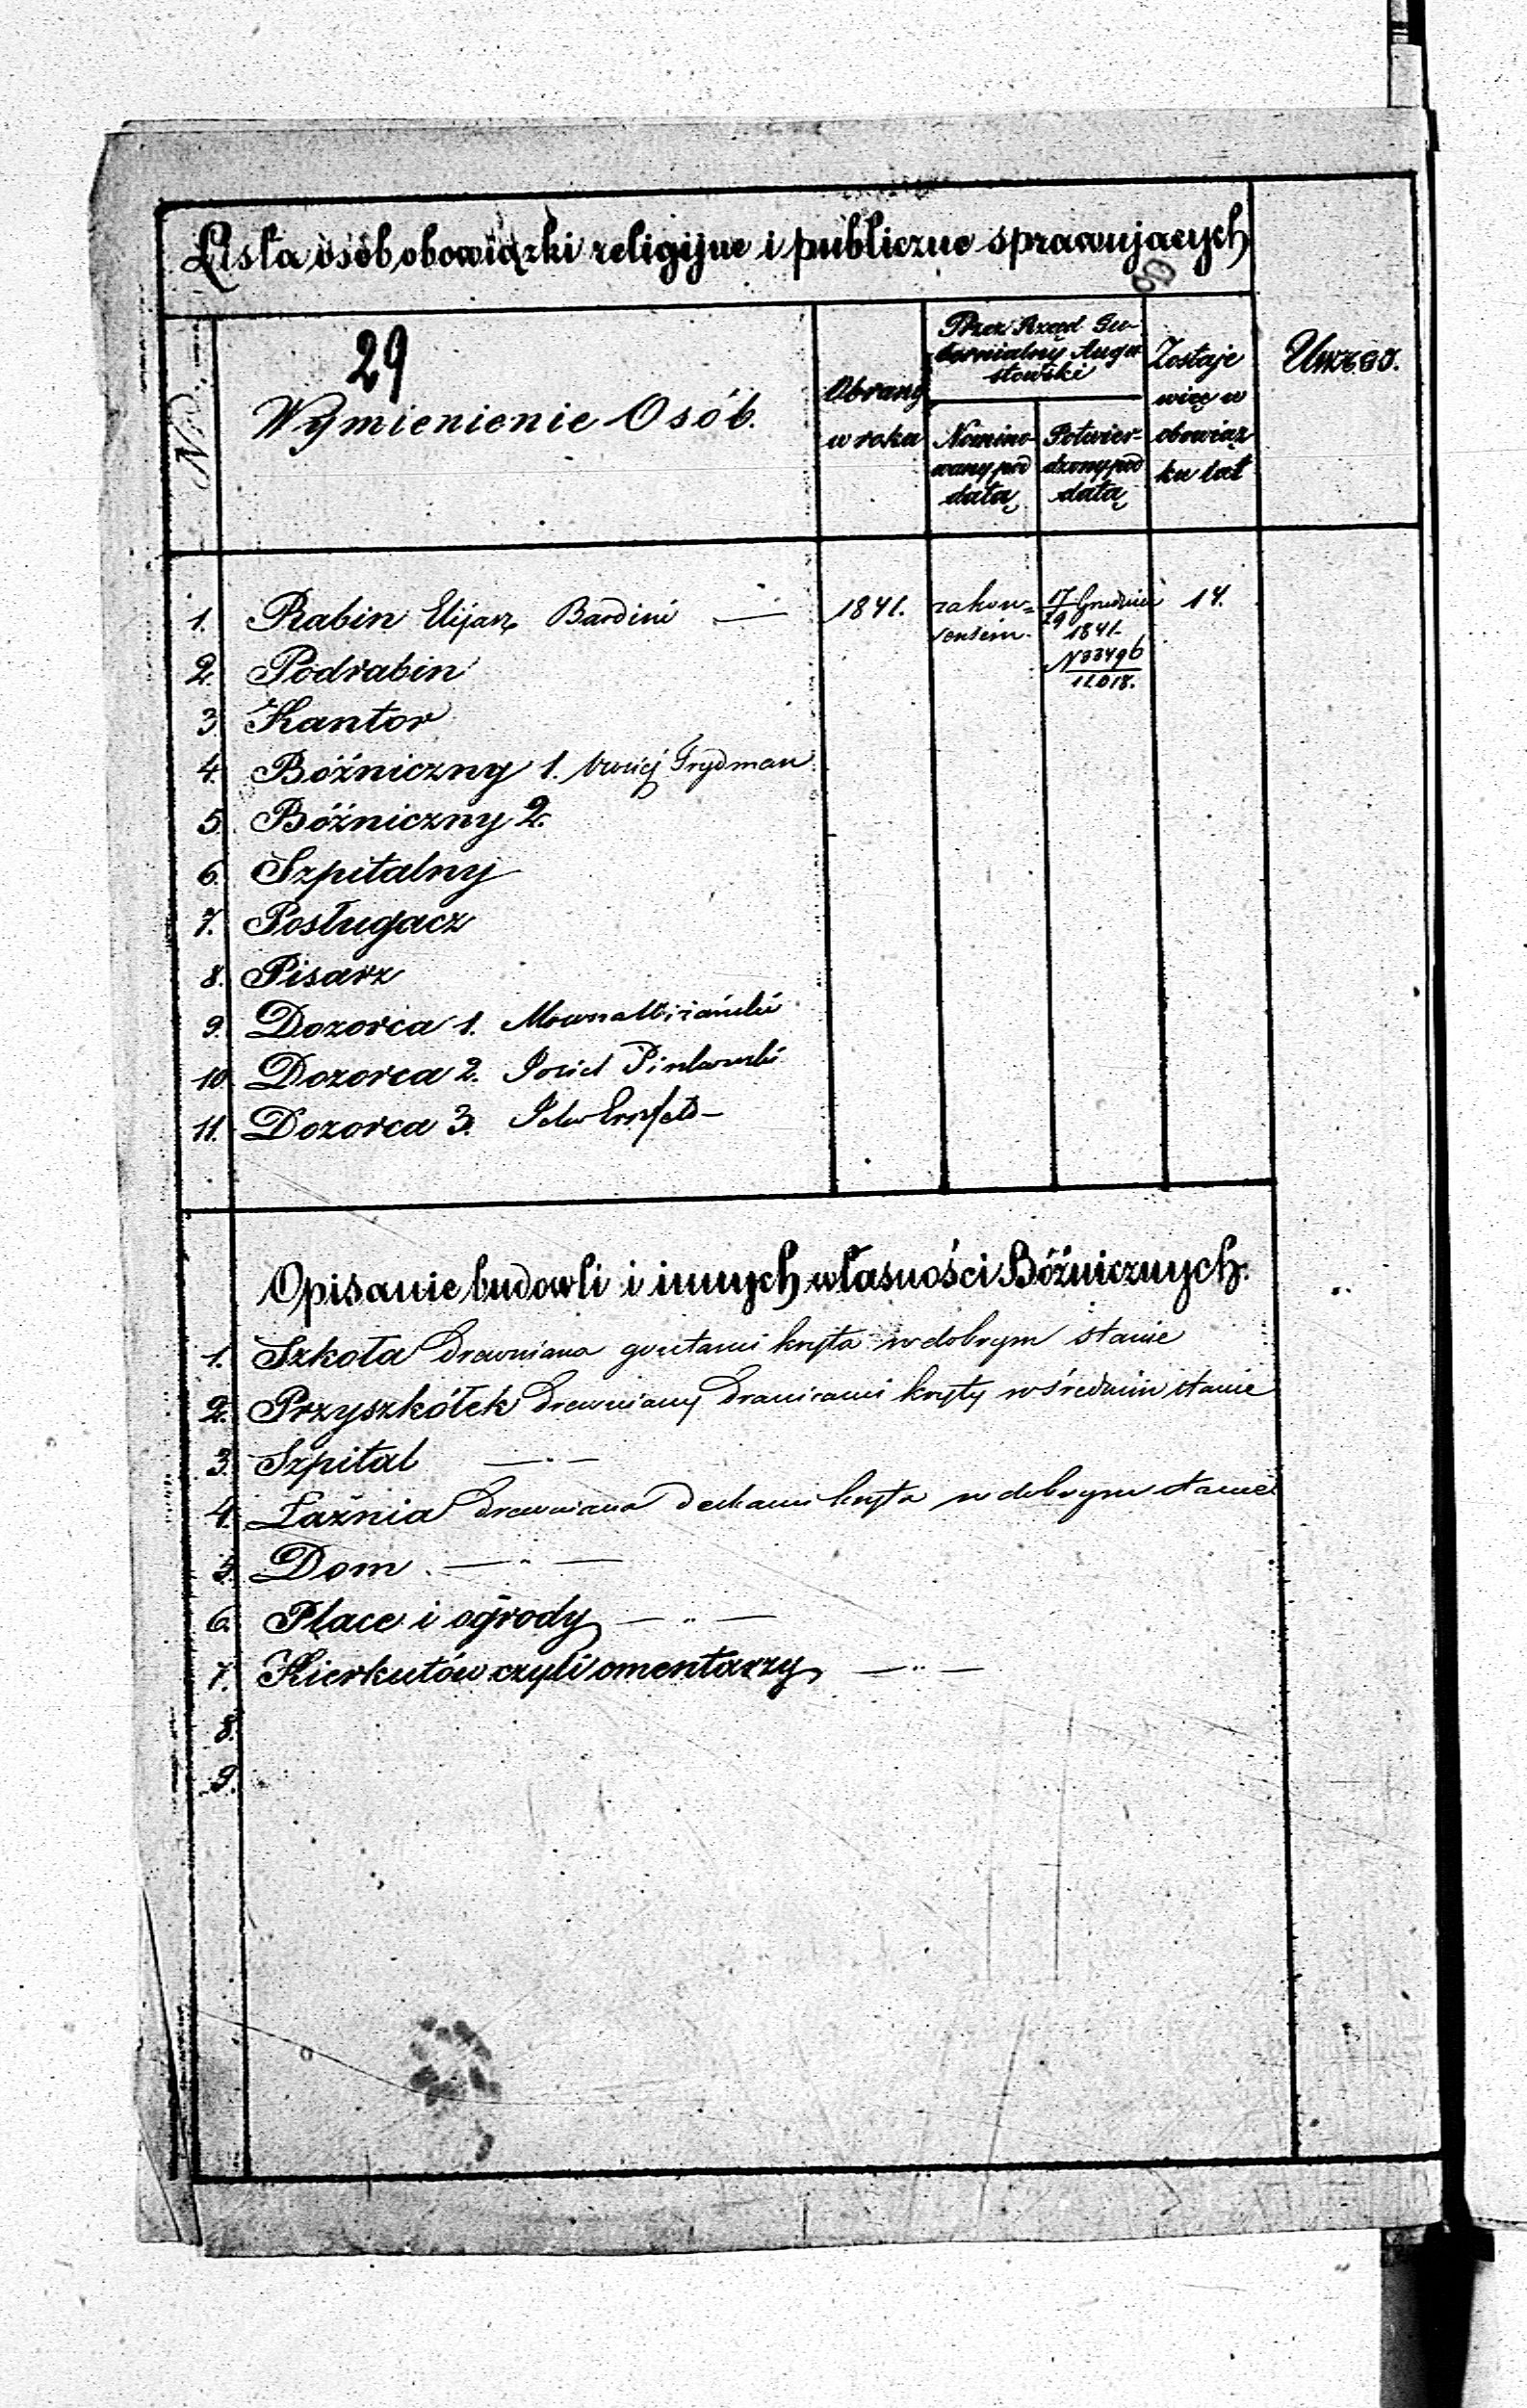 Lista osób obowiązki religijne i publiczne sprawujących
29
Nr
Wymienienie Osób.
Obrany
w roku
Przez Rząd Gu-
bernialny Augu-
stowski
Nomino-
wany pod
datą
Potwier-
dzony pod
datą
Zostaje
więc w
obowiąz
ku lat
1. Rabin Elijasz 1841. za kon= 17 Grudnia 14.
sensem. 29
1841.
N 33496
12018.
2. Podrabin
3. Kantor
4. Bóźniczny 1. Frydman
5. Bóźniczny 2.
6. Szpitalny
7. Posługacz
8. Pisarz
9. Dozorca 1.
10. Dozorca 2.
11. Dozorca 3.
Opisanie budowli i innych własności Bóźnicznych.
1. Szkoła drewniana gontami kryta w dobrym stanie
2. Przyszkółek drewniany dranicami kryty w średnim stanie
3. Szpital — „ —
4. Łaźnia drewniana deskami kryta w dobrym stanie
5. Dom. — „ —
6. Place i ogrody — „ —
7. Kierkutów czyli cmentarzy — „ —
8.
9.